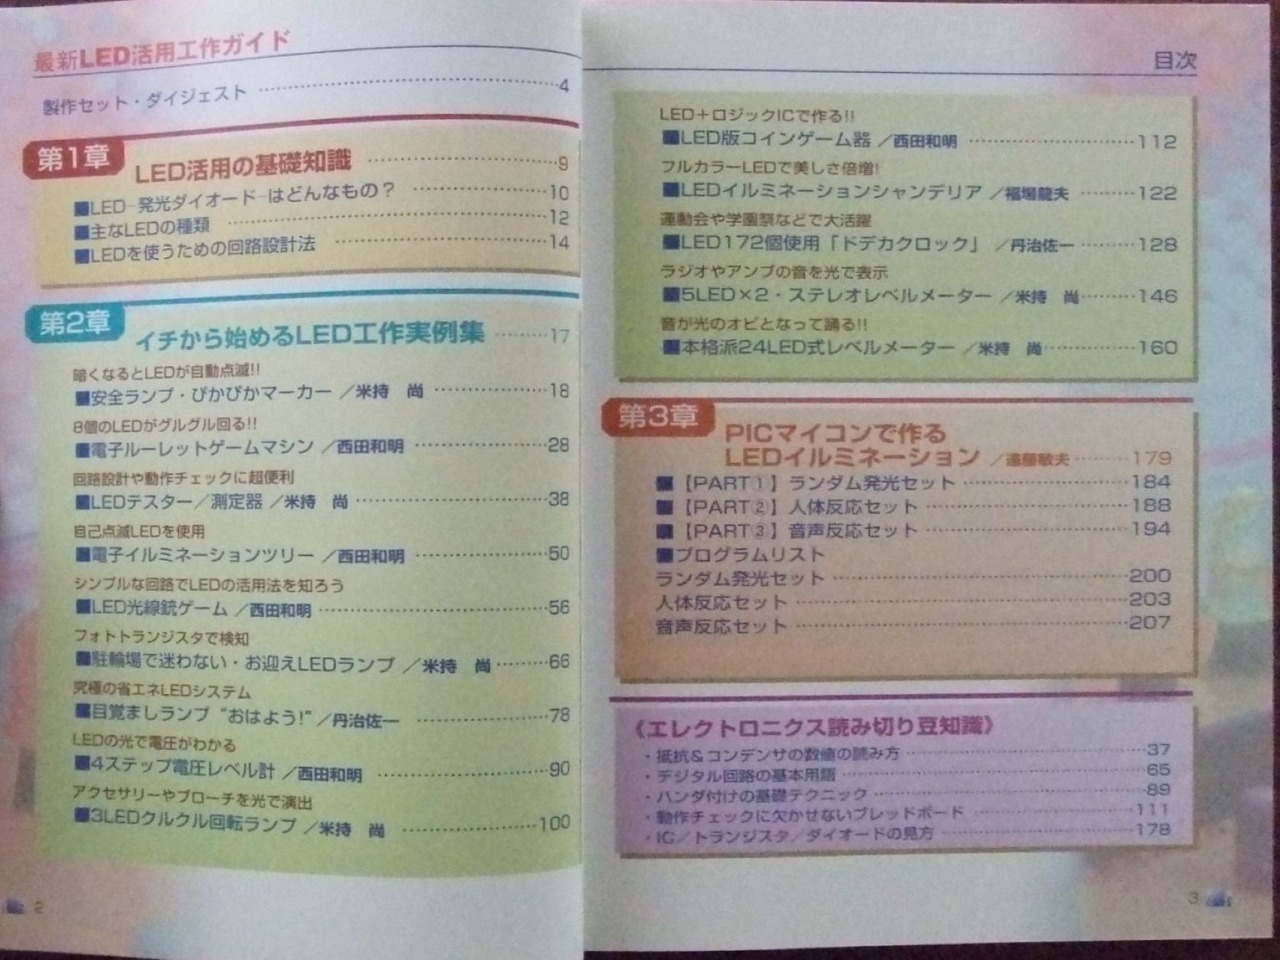 最新LED活用工作ガイド
製作セット・ダイジェスト 4
第1章 LED活用の基礎知識 9
■LED-発光ダイオード-はどんなもの？ 10
■主なLEDの種類 12
■LEDを使うための回路設計法 14
第2章 イチから始めるLED工作実例集 17
暗くなるとLEDが自動点滅!!
■安全ランプ・ぴかぴかマーカー／米持　尚 18
8個のLEDがグルグル回る!!
■電子ルーレットゲームマシン／西田和明 28
回路設計や動作チェックに超便利
■LEDテスター／測定器／米持　尚 38
自己点滅LEDを使用
■電子イルミネーションツリー／西田和明 50
シンプルな回路でLEDの活用法を知ろう
■LED光線銃ゲーム／西田和明 56
フォトトランジスタで検知
■駐輪場で迷わない・お迎えLEDランプ／米持　尚 66
究極の省エネLEDシステム
■目覚ましランプ“おはよう!”／丹治佐一 78
LEDの光で電圧がわかる
■4ステップ電圧レベル計／西田和明 90
アクセサリーやブローチを光で演出
■3LEDクルクル回転ランプ／米持　尚 100
2
目次
LED＋ロジックICで作る!!
■LED版コインゲーム器／西田和明 112
フルカラーLEDで美しさ倍増!
■LEDイルミネーションシャンデリア／福場龍夫 122
運動会や学園祭などで大活躍
■LED172個使用「ドデカクロック」／丹治佐一 128
ラジオやアンプの音を光で表示
■5LED×2・ステレオレベルメーター／米持　尚 146
音が光のオビとなって踊る!!
■本格派24LED式レベルメーター／米持　尚 160
第3章 PICマイコンで作る
LEDイルミネーション／遠藤敏夫 179
■【PART①】ランダム発光セット 184
■【PART②】人体反応セット 188
■【PART③】音声反応セット 194
■プログラムリスト
ランダム発光セット 200
人体反応セット 203
音声反応セット 207
《エレクトロニクス読み切り豆知識》
・抵抗＆コンデンサの数値の読み方 37
・デジタル回路の基本用語 65
・ハンダ付けの基礎テクニック 89
・動作チェックに欠かせないブレッドボード 111
・IC／トランジスタ／ダイオードの見方 178
3